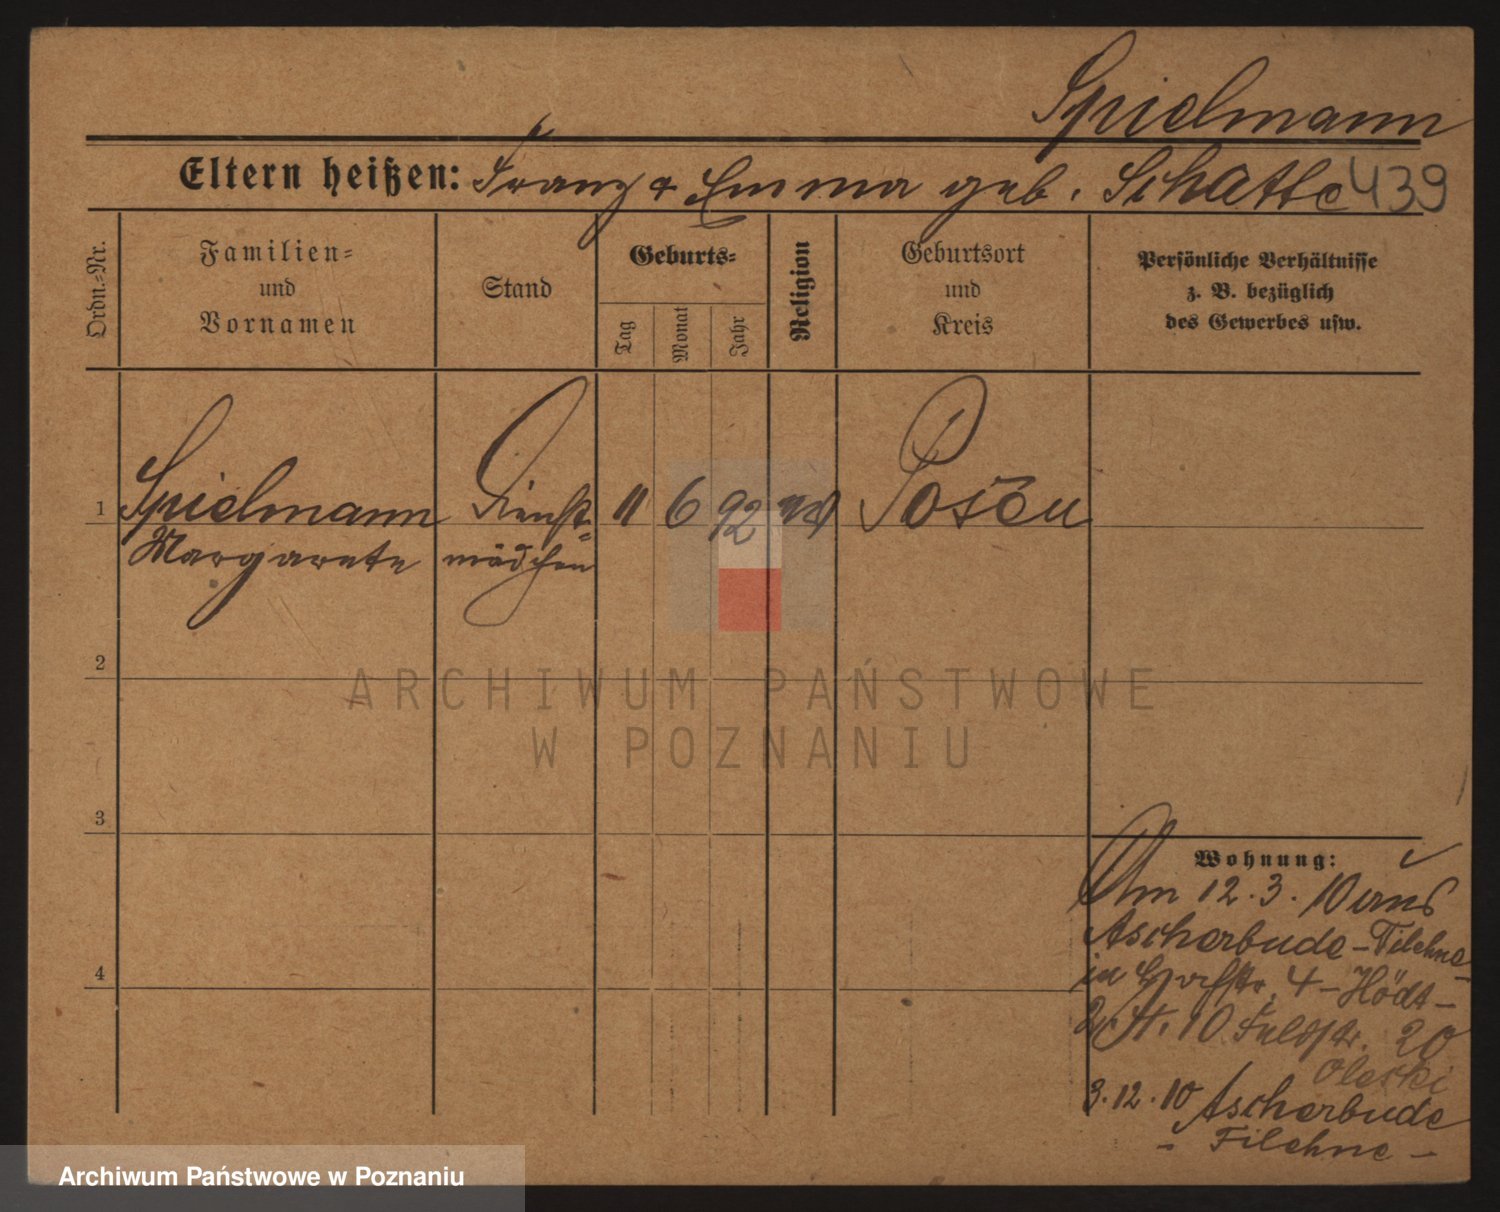 Spielmann
Eltern heißen: Franz & Emma geb. Schatte 439
Ordn.=Nr.
Familien=
und
Vornamen
Stand
Geburts=
Tag
Monat
Jahr
Religion
Geburtsort
und
Kreis
Persönliche Verhältnisse
z. B. bezüglich
des Gewerbes usw.
1 Spielmann Dienst= 11 6 92 Posen
Margarete mädchen
2
ARCHIWUM PAŃSTWOWE
W POZNANIU
3
Wohnung:
Am 12.3.10 aus
Ascherbude - Filehne -
in 4 - Hödt -
10 Feldstr. 20
Oleski
4
3.12.10 Ascherbude
- Filehne -
Archiwum Państwowe w Poznaniu